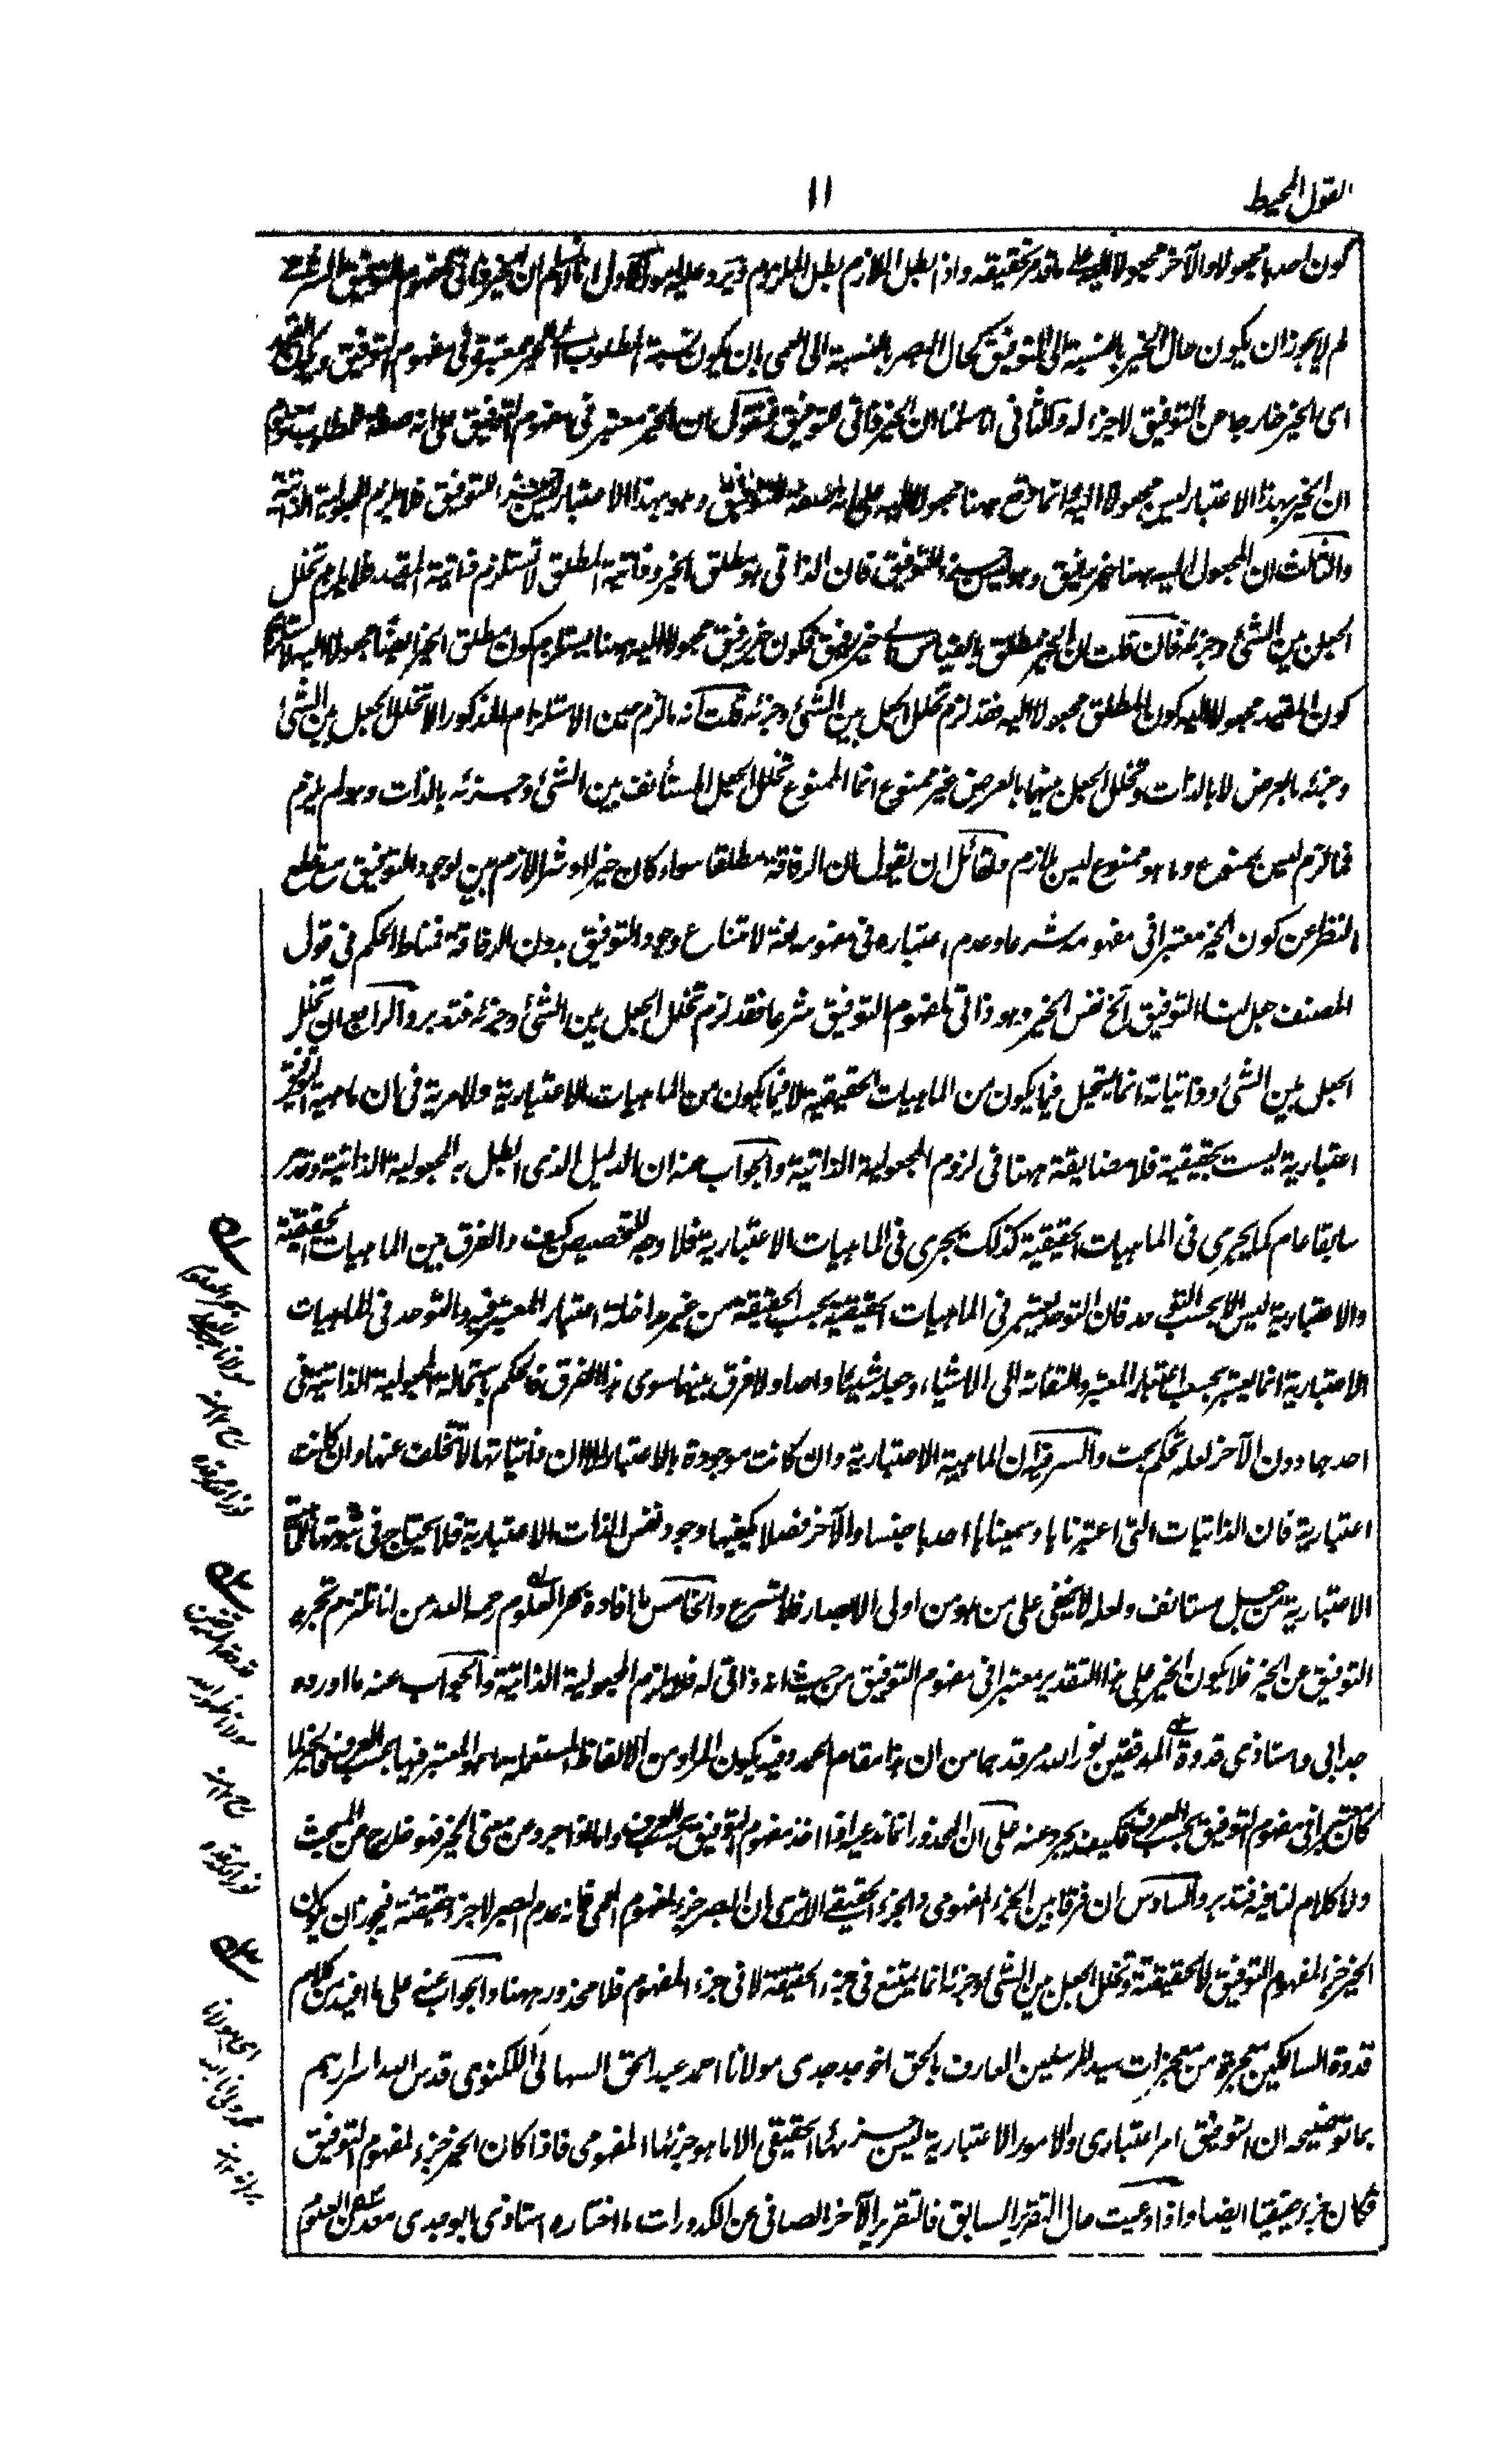 القول المحيط
١١
كون احدها مجعولا والآخر مجعولا اليه على ما قد مر تحقيقه واذا بطل اللازم بطل الملزوم ويرد عليه الاول انا لا نسلم ان الخير ذاتى لمفهوم التوفيق الشرعى
لم لا يجوز ان يكون حال الخير بالنسبة الى التوفيق كحال البصر بالنسبة الى العمى بان يكون نسبة المطلوب الى الخير معتبرة فى مفهوم التوفيق ويكون
اى الخير خارجا من التوفيق لا جزء له والثانى انا سلمنا ان الخير ذاتى للتوفيق فنقول ان الخير معتبر فى مفهوم التوفيق على انه صفة المطلوب
ان الخير بهذا الاعتبار ليس مجعولا اليه انما وقع ههنا مجعولا اليه على انه صفة للتوفيق وهو بهذا الاعتبار ليس جزء التوفيق فلا يلزم المجعولية الذاتية
والثالث ان المجعول اليه ههنا خير رفيق وهو ليس جزء للتوفيق فان الذاتى هو مطلق الخير وذاتية المطلق لا تستلزم ذاتية المقيد فلا يلزم تخلل
الجعل بين الشئ وجزئه فان قلت ان الخير مطلق بالقياس الى خير رفيق فكون خير رفيق مجعولا اليه ههنا يستلزم كون مطلق الخير ايضا مجعولا اليه
كون المقيد مجعولا اليه كون المطلق مجعولا اليه فقد لزم تخلل الجعل بين الشئ وجزئه قلت انه ما لزم من الاستلزام المذكور الا تخلل الجعل بين الشئ
وجزئه بالعرض لا بالذات وتخلل الجعل بينهما بالعرض غير ممنوع انما الممنوع تخلل الجعل المستأنف بين الشئ وجزئه بالذات وهو لم يلزم
فما لزم ليس بممنوع وما هو ممنوع ليس بلازم ولقائل ان يقول ان الرفاقة مطلقا سواء كان خيرا او شرا لازم بين لوجود التوفيق مع قطع
النظر عن كون الخير معتبرا فى مفهومه شرعا وعدم اعتباره فى مفهومه لغة لامتناع وجود التوفيق بدون الرفاقة فمناط الحكم فى قول
المصنف جعل لنا التوفيق الخ نفس الخير وهو ذاتى لمفهوم التوفيق شرعا فقد لزم تخلل الجعل بين الشئ وجزئه فتدبر والرابع ان تخلل
الجعل بين الشئ وذاتياته انما يستحيل فيما يكون من الماهيات الحقيقية لا فيما يكون من الماهيات الاعتبارية ولا مرية فى ان ماهية التوفيق
اعتبارية ليست بحقيقية فلا مضايقة ههنا فى لزوم المجعولية الذاتية والجواب عنه ان الدليل الذى ابطل به المجعولية الذاتية وقد مر
سابقا عام كما يجرى فى الماهيات الحقيقية كذلك يجرى فى الماهيات الاعتبارية فلا وجه للتخصيص كيف والفرق بين الماهيات الحقيقية
والاعتبارية ليس الا بحسب التوحد فان التوحد يعتبر فى الماهيات الحقيقية بحسب الحقيقة من غير مداخلة اعتبار المعتبر فيه والتوحد فى الماهيات
الاعتبارية انما يعتبر بحسب اعتبار المعتبر والتفاته الى الاشياء وجعله شيئا واحدا ولا فرق بينهما سوى هذا الفرق فالحكم باستحالة المجعولية الذاتية فى
احدهما دون الآخر لعله تحكم بحت والسر فيه ان الماهية الاعتبارية وان كانت موجودة بالاعتبار الا ان ذاتياتها لا تتخلف عنها وان كانت
اعتبارية فان الذاتيات التى اعتبرناها وسمينا احدها جنسا والآخر فصلا يكفيها وجود نفس الذات الاعتبارية فلا يحتاج فى ثبوتها للذات
الاعتبارية من جعل مستانف ولعله لا يخفى على من هو من اولى الابصار فلا تسرع والخامس ما افاده بحر العلوم رحمه الله من انا نلتزم تجريد
التوفيق عن الخير فلا يكون الخير على هذا التقدير معتبرا فى مفهوم التوفيق من حيث انه ذاتى له فلا يلزم المجعولية الذاتية والجواب عنه ما اورده
جد ابى واستاذى قدوة المدققين نور الله مرقدهما من ان هذا مقام الحمد وفيه يكون المراد من الالفاظ المستعملة ما هو المعتبر فيها بحسب العرف فالخير لما
كان معتبرا فى مفهوم التوفيق بحسب العرف فكيف يجرد عنه على ان المحذور انما ندعيه اذا اخذ مفهوم التوفيق بحسب العرف واما اذا جرد عن معنى الخير فهو خارج عن المبحث
ولا كلام لنا فيه فتدبر والسادس ان فرقا بين الجزء المفهومى والجزء الحقيقى الا ترى ان البصر جزء لمفهوم العمى فانه عدم البصر لا جزء حقيقته فيجوز ان يكون
الخير جزء لمفهوم التوفيق لا لحقيقته وتخلل الجعل بين الشئ وجزئه انما يمتنع فى جزء الحقيقة لا فى جزء المفهوم فلا محذور ههنا والجواب عنه على ما افيد من كلام
قدوة السالكين معجزة من معجزات سيد المرسلين العارف بالحق اخو جد جدى مولانا احمد عبد الحق السهالى اللكنوى قدس الله اسرارهم
بما توضيحه ان التوفيق امر اعتبارى والامور الاعتبارية ليس جزئها الحقيقى الا ما هو جزئها المفهومى فاذا كان الخير جزء لمفهوم التوفيق
فكان جزء حقيقيا ايضا واذا دعيت حال التقرير السابق فالتقرير الآخر الصافى عن الكدورات ما اختاره استاذى ابو جدى معدن العلوم